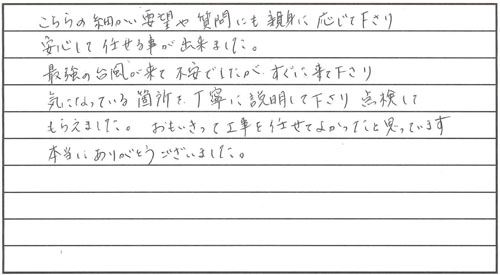 こちらの細かい要望や質問にも親身に応じて下さり
安心して任せる事が出来ました。
最強の台風が来て不安でしたが、すぐに来て下さり
気になっている箇所を丁寧に説明して下さり点検して
もらえました。おもいきって工事を任せてよかったと思っています
本当にありがとうございました。